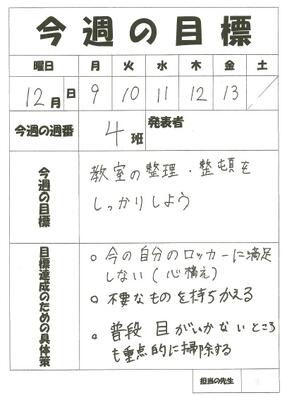 今週の目標
曜日 月 火 水 木 金 土
12月 日 9 10 11 12 13 /
今週の週番 4班 発表者
今週の目標
教室の整理・整頓を
しっかりしよう
目標達成のための具体策
○今の自分のロッカーに満足
しない(心構え)
○不要なものを持ちかえる
○普段目がいかないところ
も重点的に掃除する
担当の先生